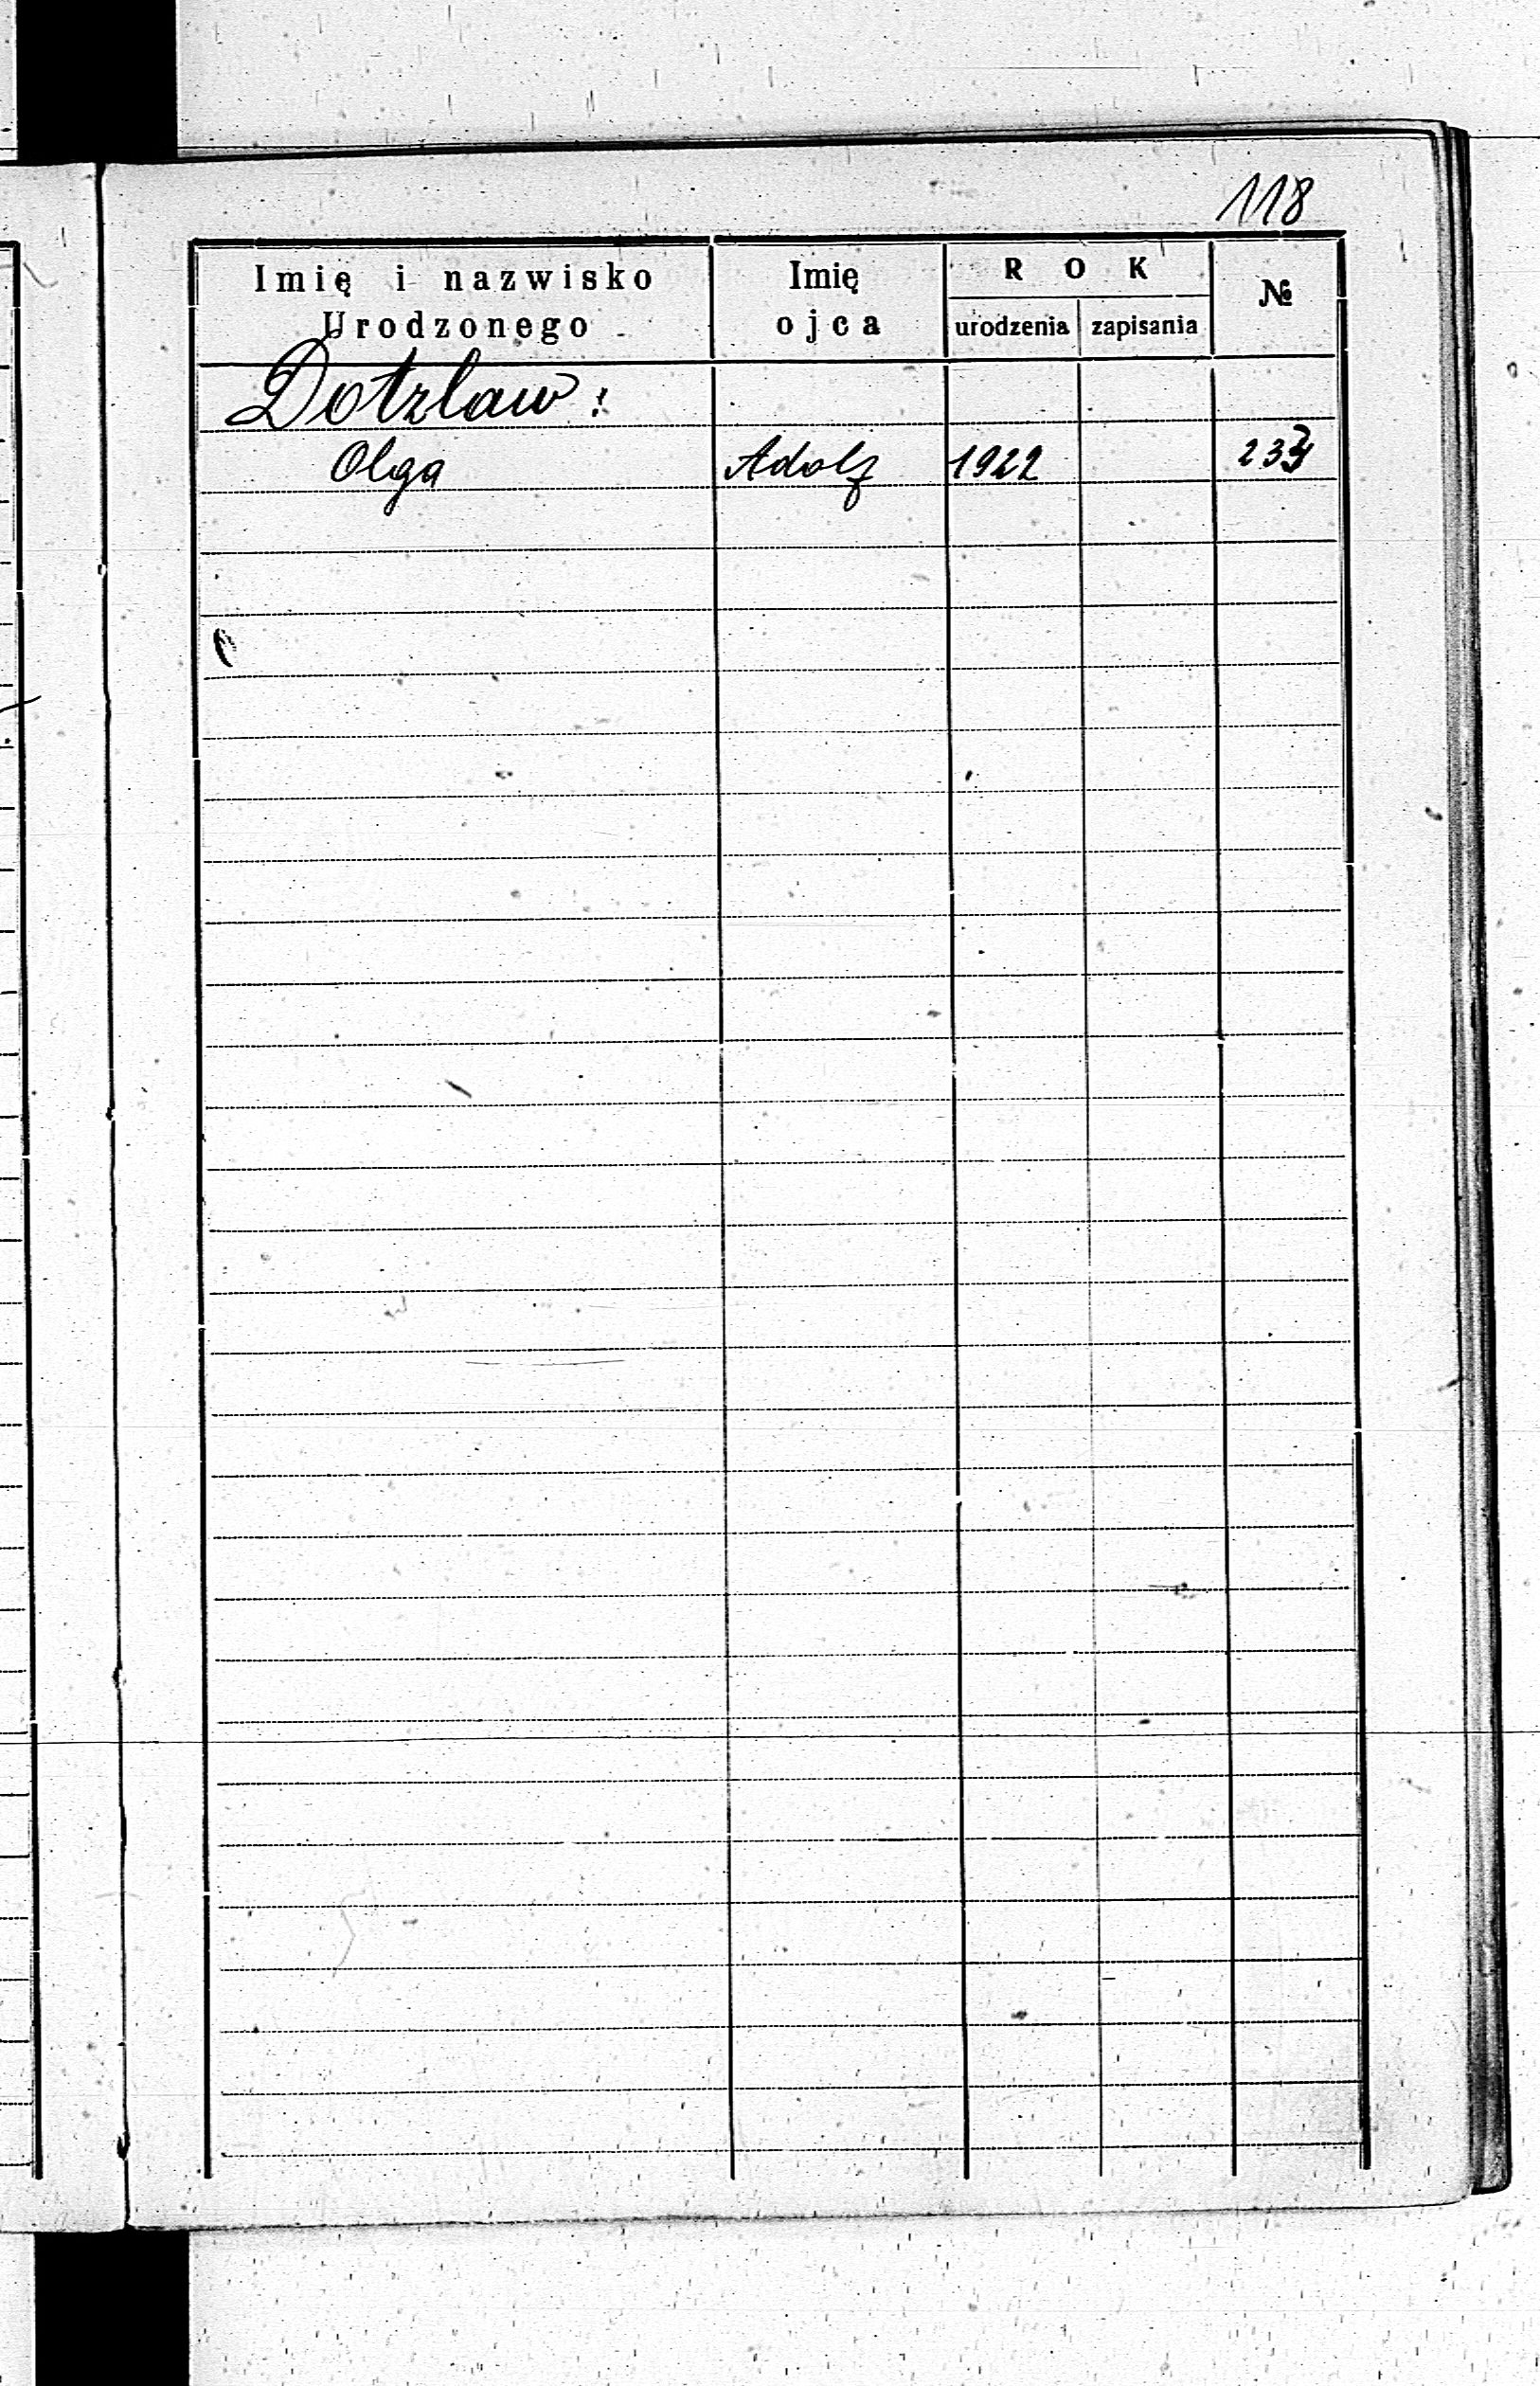 118
Imię i nazwisko Urodzonego Imię ojca ROK urodzenia zapisania №
Dotzlaw:
Olga Adolf 1922